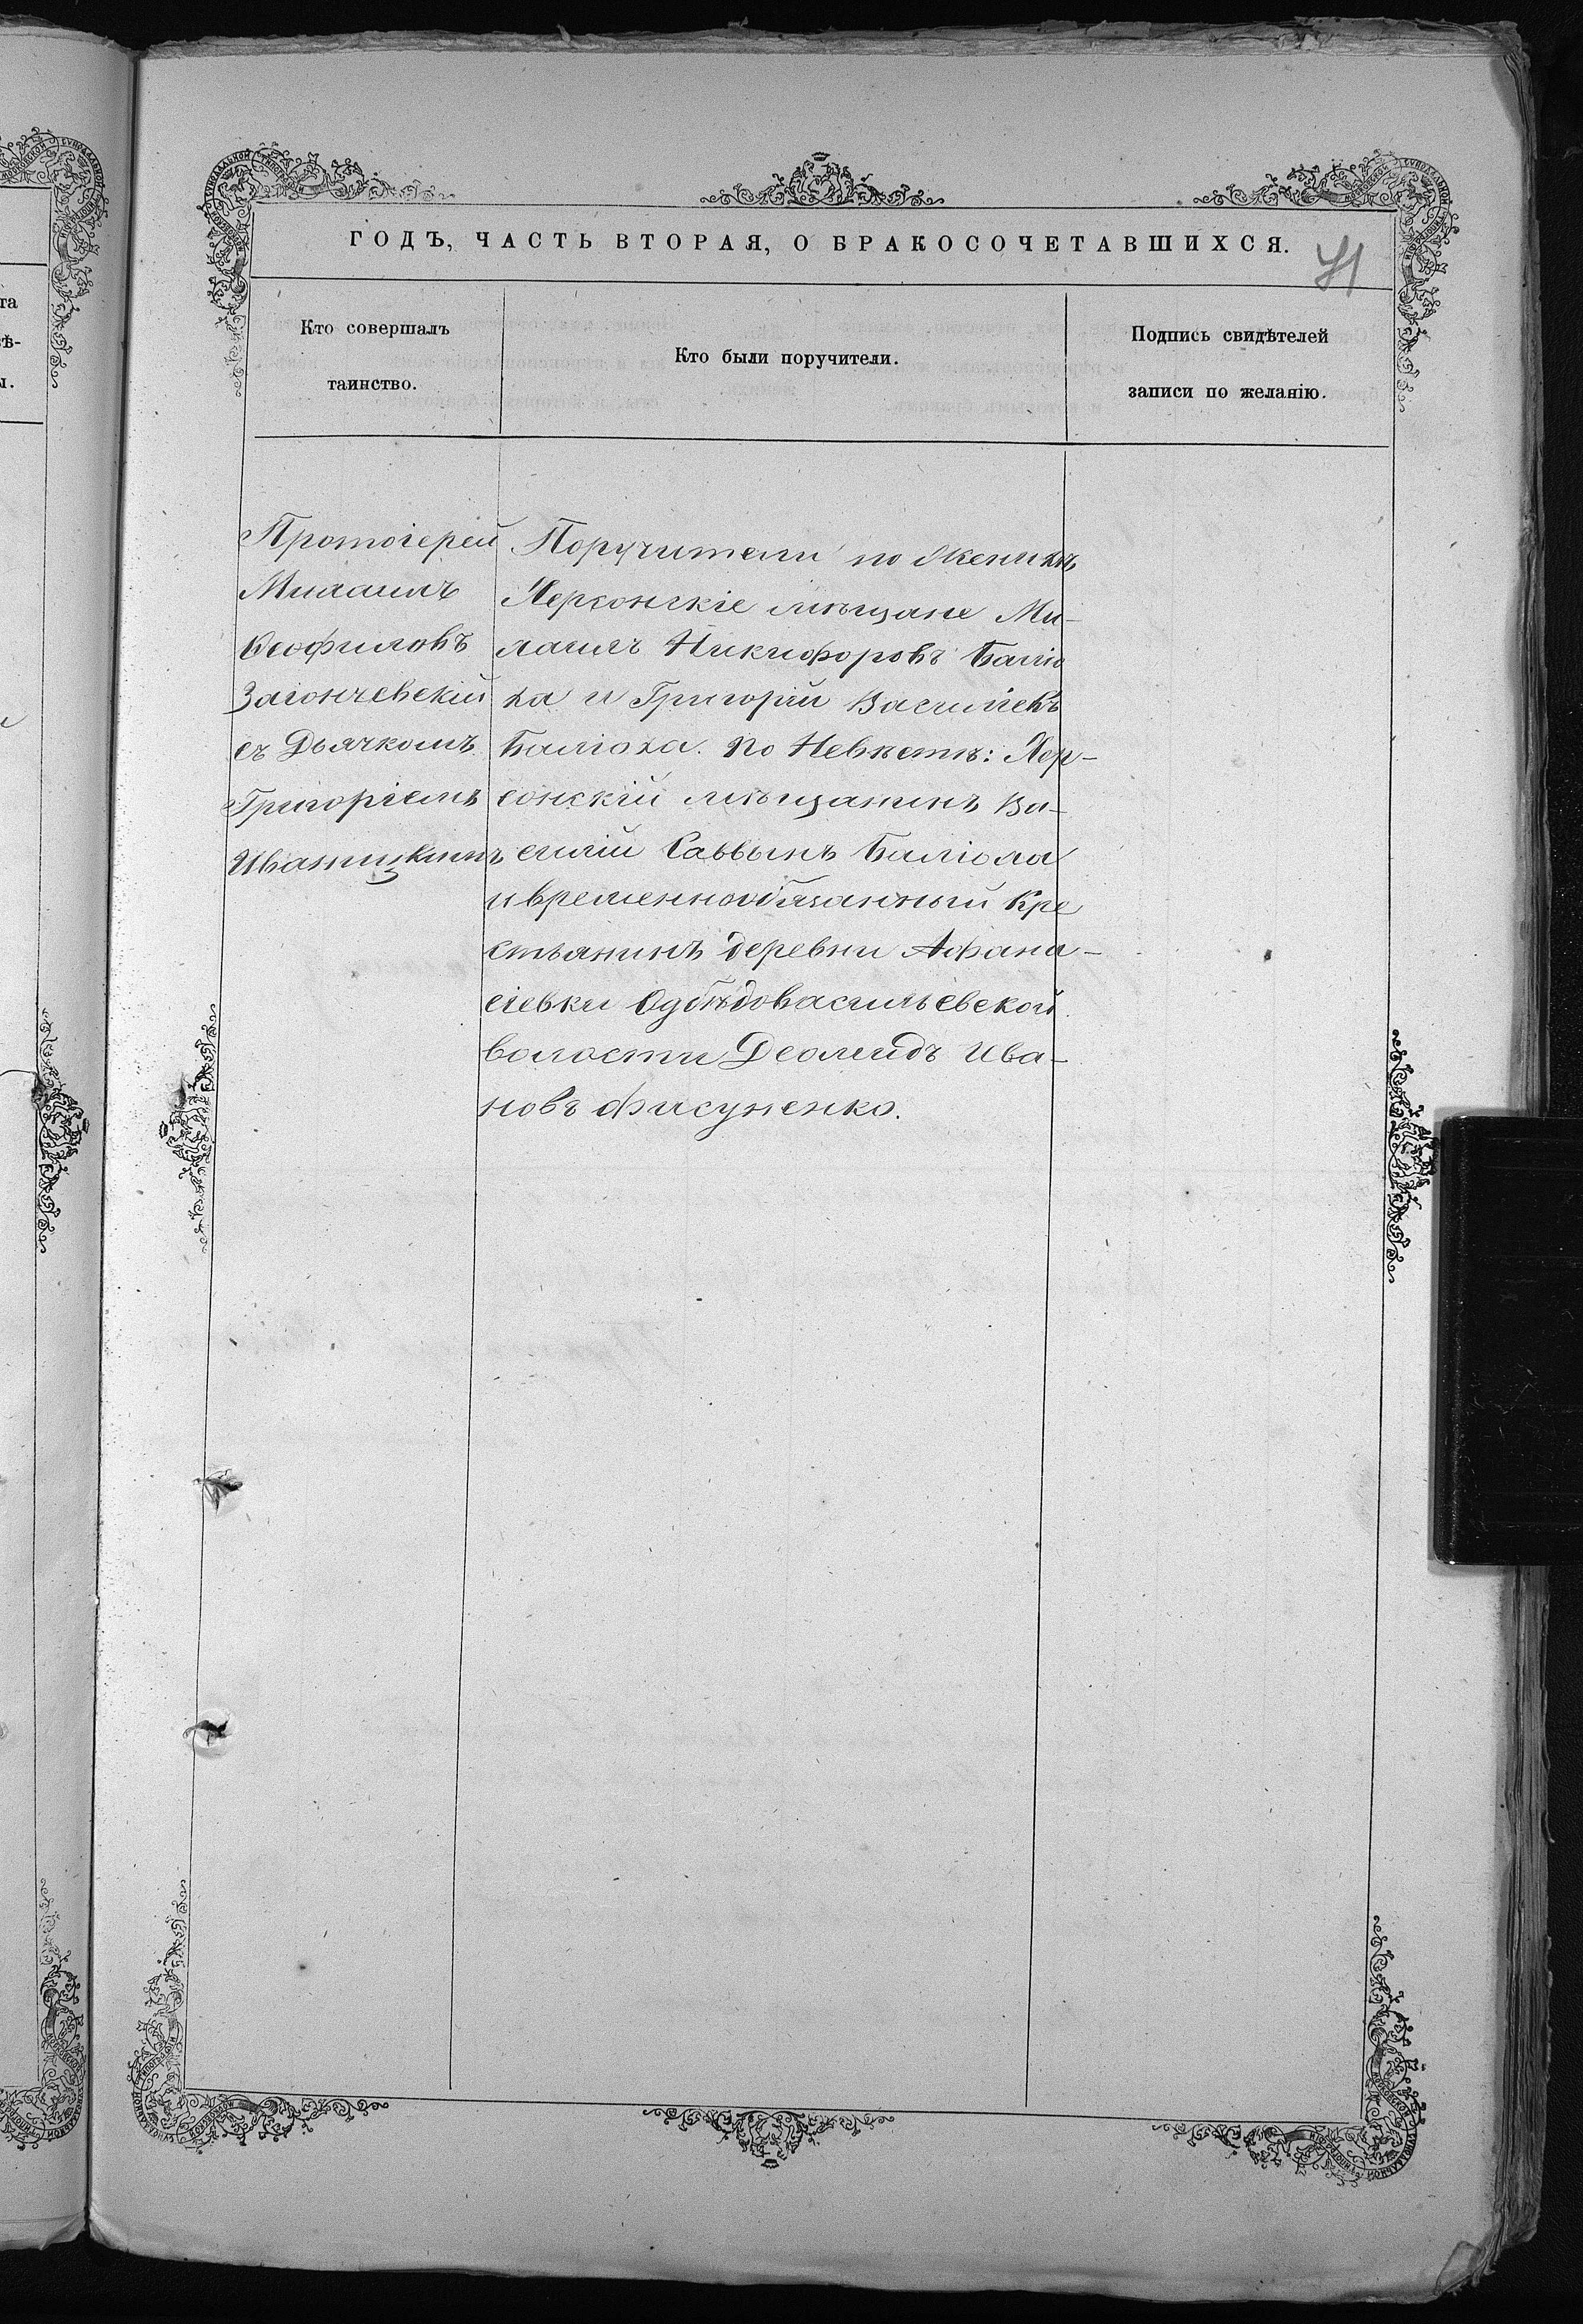 ГОДЪ, ЧАСТЬ ВТОРАЯ, О БРАКОСОЧЕТАВШИХСЯ.
41
Кто совершалъ
таинство.
Кто были поручители.
Подпись свидѣтелей
записи по желанію.
Протоіерей
Михаилъ
Ѳеофиловъ
Загончевскій
съ Дьячкомъ
Григоріемъ
Иваницкимъ
Поручители по Женихѣ
Херсонскіе мѣщане Ми-
хаилъ Никифоровъ Баліо
ха и Григорій Василіевъ
Баліоха. По Невѣстѣ: Хер-
сонскій мѣщанинъ Ва-
силій Саввынъ Баліоха
и временнообязанный Кре
стьянинъ деревни Афана-
сіевки васильевской
волости Деомидъ Ива-
новъ Фисуненко.
та
вѣ-
ы.